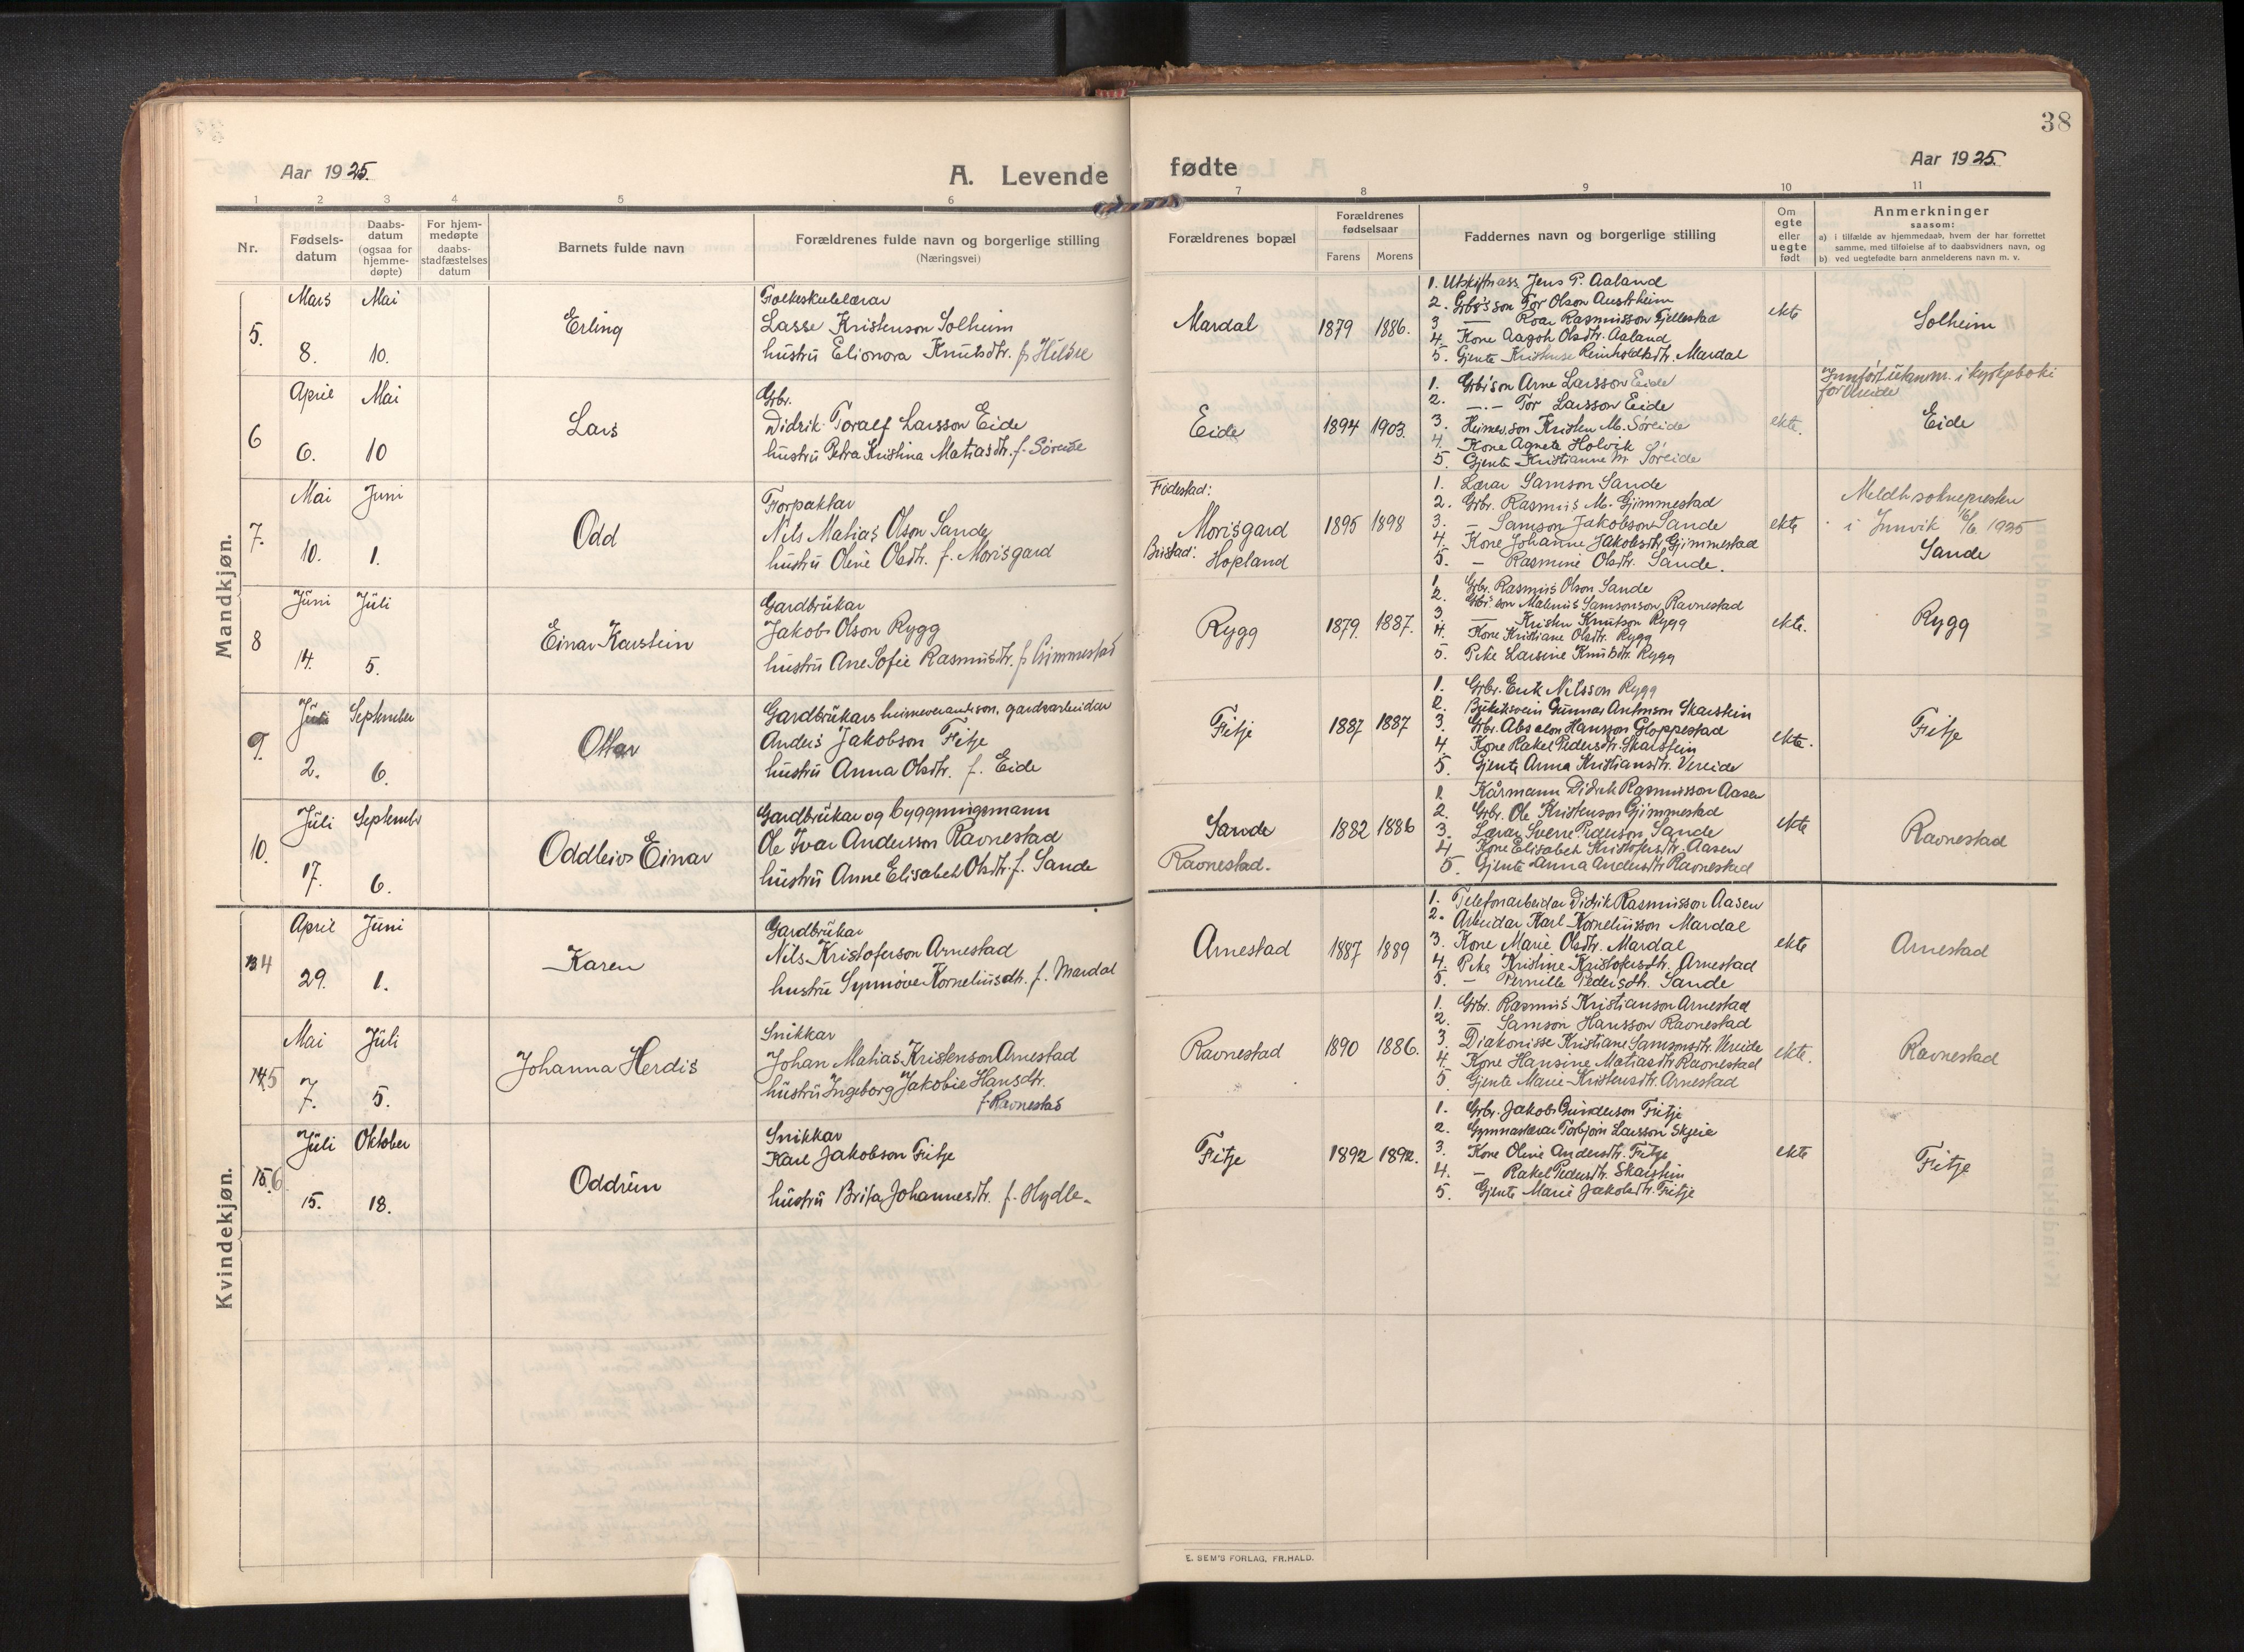 38
Aar 1925.
A. Levende
fødte
Aar 1925.
1 2 3 4 5 6 7 8 9 10 11
Nr.
Fødsels-
datum
Daabs-
datum
(ogsaa for
hjemme-
døpte)
For hjem-
medøpte
daabs-
stadfæstelses
datum
Barnets fulde navn
Forældrenes fulde navn og borgerlige stilling
(Næringsvei)
Forældrenes bopæl
Forældrenes
fødselsaar
Farens Morens
Faddernes navn og borgerlige stilling
Om
egte
eller
uegte
født
Anmerkninger
saasom:
a) i tilfælde av hjemmedaab, hvem der har forrettet
samme, med tilføielse af to daabsvidners navn, og
b) ved uegtefødte barn anmelderens navn m. v.
Mandkjøn.
5.
Mars Mai
8. 10.
Erling
Folkeskulelærar
Lasse Kristenson Solheim
hustru Elionora Knutsdtr. f. Hildre
Mardal
1879 1886.
1. Utskiftnass. Jens P. Aaland
2. Grbr's son Tor Olson Austrheim
3 — Roar Rasmusson Fjellestad
4. Kone Aagoh Olsdtr. Aaland
5. Gjente Kristense Reinholdtsdtr. Mardal
ekte
Solheim
6
April Mai
6. 10
Lars
Gbr.
Didrik Toralf Larsson Eide
hustru Petra Kristina Matiasdtr. f. Søreide
Eide
1894 1903.
1. Grbr'son Arne Larsson Eide
2. —.— Tor Larsson Eide
3. Heimev.son Kristen M. Søreide
4. Kone Agnete Holvik
5. Gjente Kristianne M. Søreide
ekte.
Innført utanum. i kyrkjeboki
for Vereide
Eide
7.
Mai Juni
10. 1.
Odd
Forpaktar
Nils Matias Olson Sande
hustru Oline Olsdtr. f. Morisgard
Fødestad:
Morisgard
Bustad: Hopland
1895 1898
1. Lærar Samson Sande
2. Grbr. Rasmus M. Gjimmestad
3. — Samson Jakobson Sande
4. Kone Johanne Jakobsdtr. Gjimmestad
5. — Rasmine Olsdtr. Sande.
ekte
Meldt soknepresten
i Innvik 16/6. 1925
Sande
8
Juni Juli
14. 5.
Einar Karstein
Gardbrukar
Jakob Olson Rygg
hustru Ane Sofie Rasmusdtr. f. Gimmestad
Rygg
1879. 1887.
1. Grbr. Rasmus Olson Sande
2. Grbr's son Matenus Samsonson Ravnestad
3 — Kristen Knutson Rygg
4. Kone Kristiane Olsdtr. Rygg
5. Pike Larsine Knutsdtr. Rygg
ekte.
Rygg
9.
Juli September
2. 6.
Ottar
Gardbrukars heimeverandeson, gardsarbeidar
Anders Jakobson Fitje
hustru Anna Olsdtr. f. Eide
Fitje
1887 1887
1. Grbr. Erik Nilsson Rygg
2. Butiksvein Gunnar Antonson Skarstein
3. Grbr. Absalon Hansson Gloppestad
4. Kone Rakel Pedersdtr. Skarstein
5. Gjente Anna Kristiansdtr. Vereide
ekte.
Fitje
10.
Juli September
17. 6.
Oddleiv Einar
Gardbrukar og byggningsmann
Ole Ivar Andersson Ravnestad
hustru Anne Elisabeth Olsdtr. f. Sande
Sande
Ravnestad.
1882 1886
1. Kårmann Didrik Rasmusson Aasen
2. Grbr. Ole Kristenson Gjimmestad
3. Lærar Sverre Pederson Sande
4 Kone Elisabeh Kristofersdtr. Aasen
5. Gjente Anna Andersdtr. Ravnestad
ekte
Ravnestad
Kvindekjøn.
4
April Juni
29. 1.
Karen
Gardbrukar
Nils Kristoferson Arnestad
hustru Synnøve Korneliusdtr. f. Mardal
Arnestad
1887 1889
1. Telefonarbeidar Didrik Rasmusson Aasen
2. Arbeidar Karl Korneliusson Mardal
3. Kone Marie Olsdtr. Mardal
4. Pike Kristine Kristofersdtr. Arnestad
5. — Pernille Pedersdtr. Sande
ekte
Arnestad
5
Mai Juli
7. 5.
Johanna Herdis
Snikkar
Johan Matias Kristenson Arnestad
hustru Ingeborg Jakobie Hansdtr.
f. Ravnestad
Ravnestad
1890 1886.
1. Grbr. Rasmus Kristianson Arnestad
2. — Samson Hansson Ravnestad
3. Diakonisse Kristiane Samsonsdtr. Vereide
4. Kone Hansine Matiasdtr. Ravnestad
5. Gjente Marie Kristensdtr. Arnestad
ekte.
Ravnestad
6
Juli Oktober
15. 18.
Oddrun
Snikkar
Karl Jakobson Fitje
hustru Brita Johannesdtr. f. Hydle.
Fitje
1892 1892.
1. Grbr. Jakob Gunderson Fitje
2. Gymnaslærar Torbjørn Larsson Skjeie
3. Kone Oline Andersdtr. Fitje
4. — Rakel Pedersdtr. Skarstein
5. Gjente Marie Jakobsdtr. Fitje
ekte
Fitje
E. SEM'S FORLAG, FR.HALD.